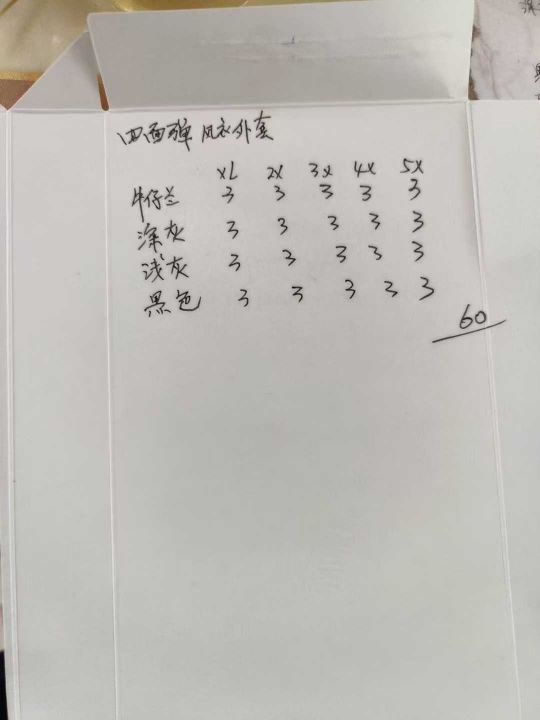 四面弹 风衣外套
XL 2X 3X 4X 5X
牛仔兰 3 3 3 3 3
深灰 3 3 3 3 3
浅灰 3 3 3 3 3
黑色 3 3 3 3 3
60